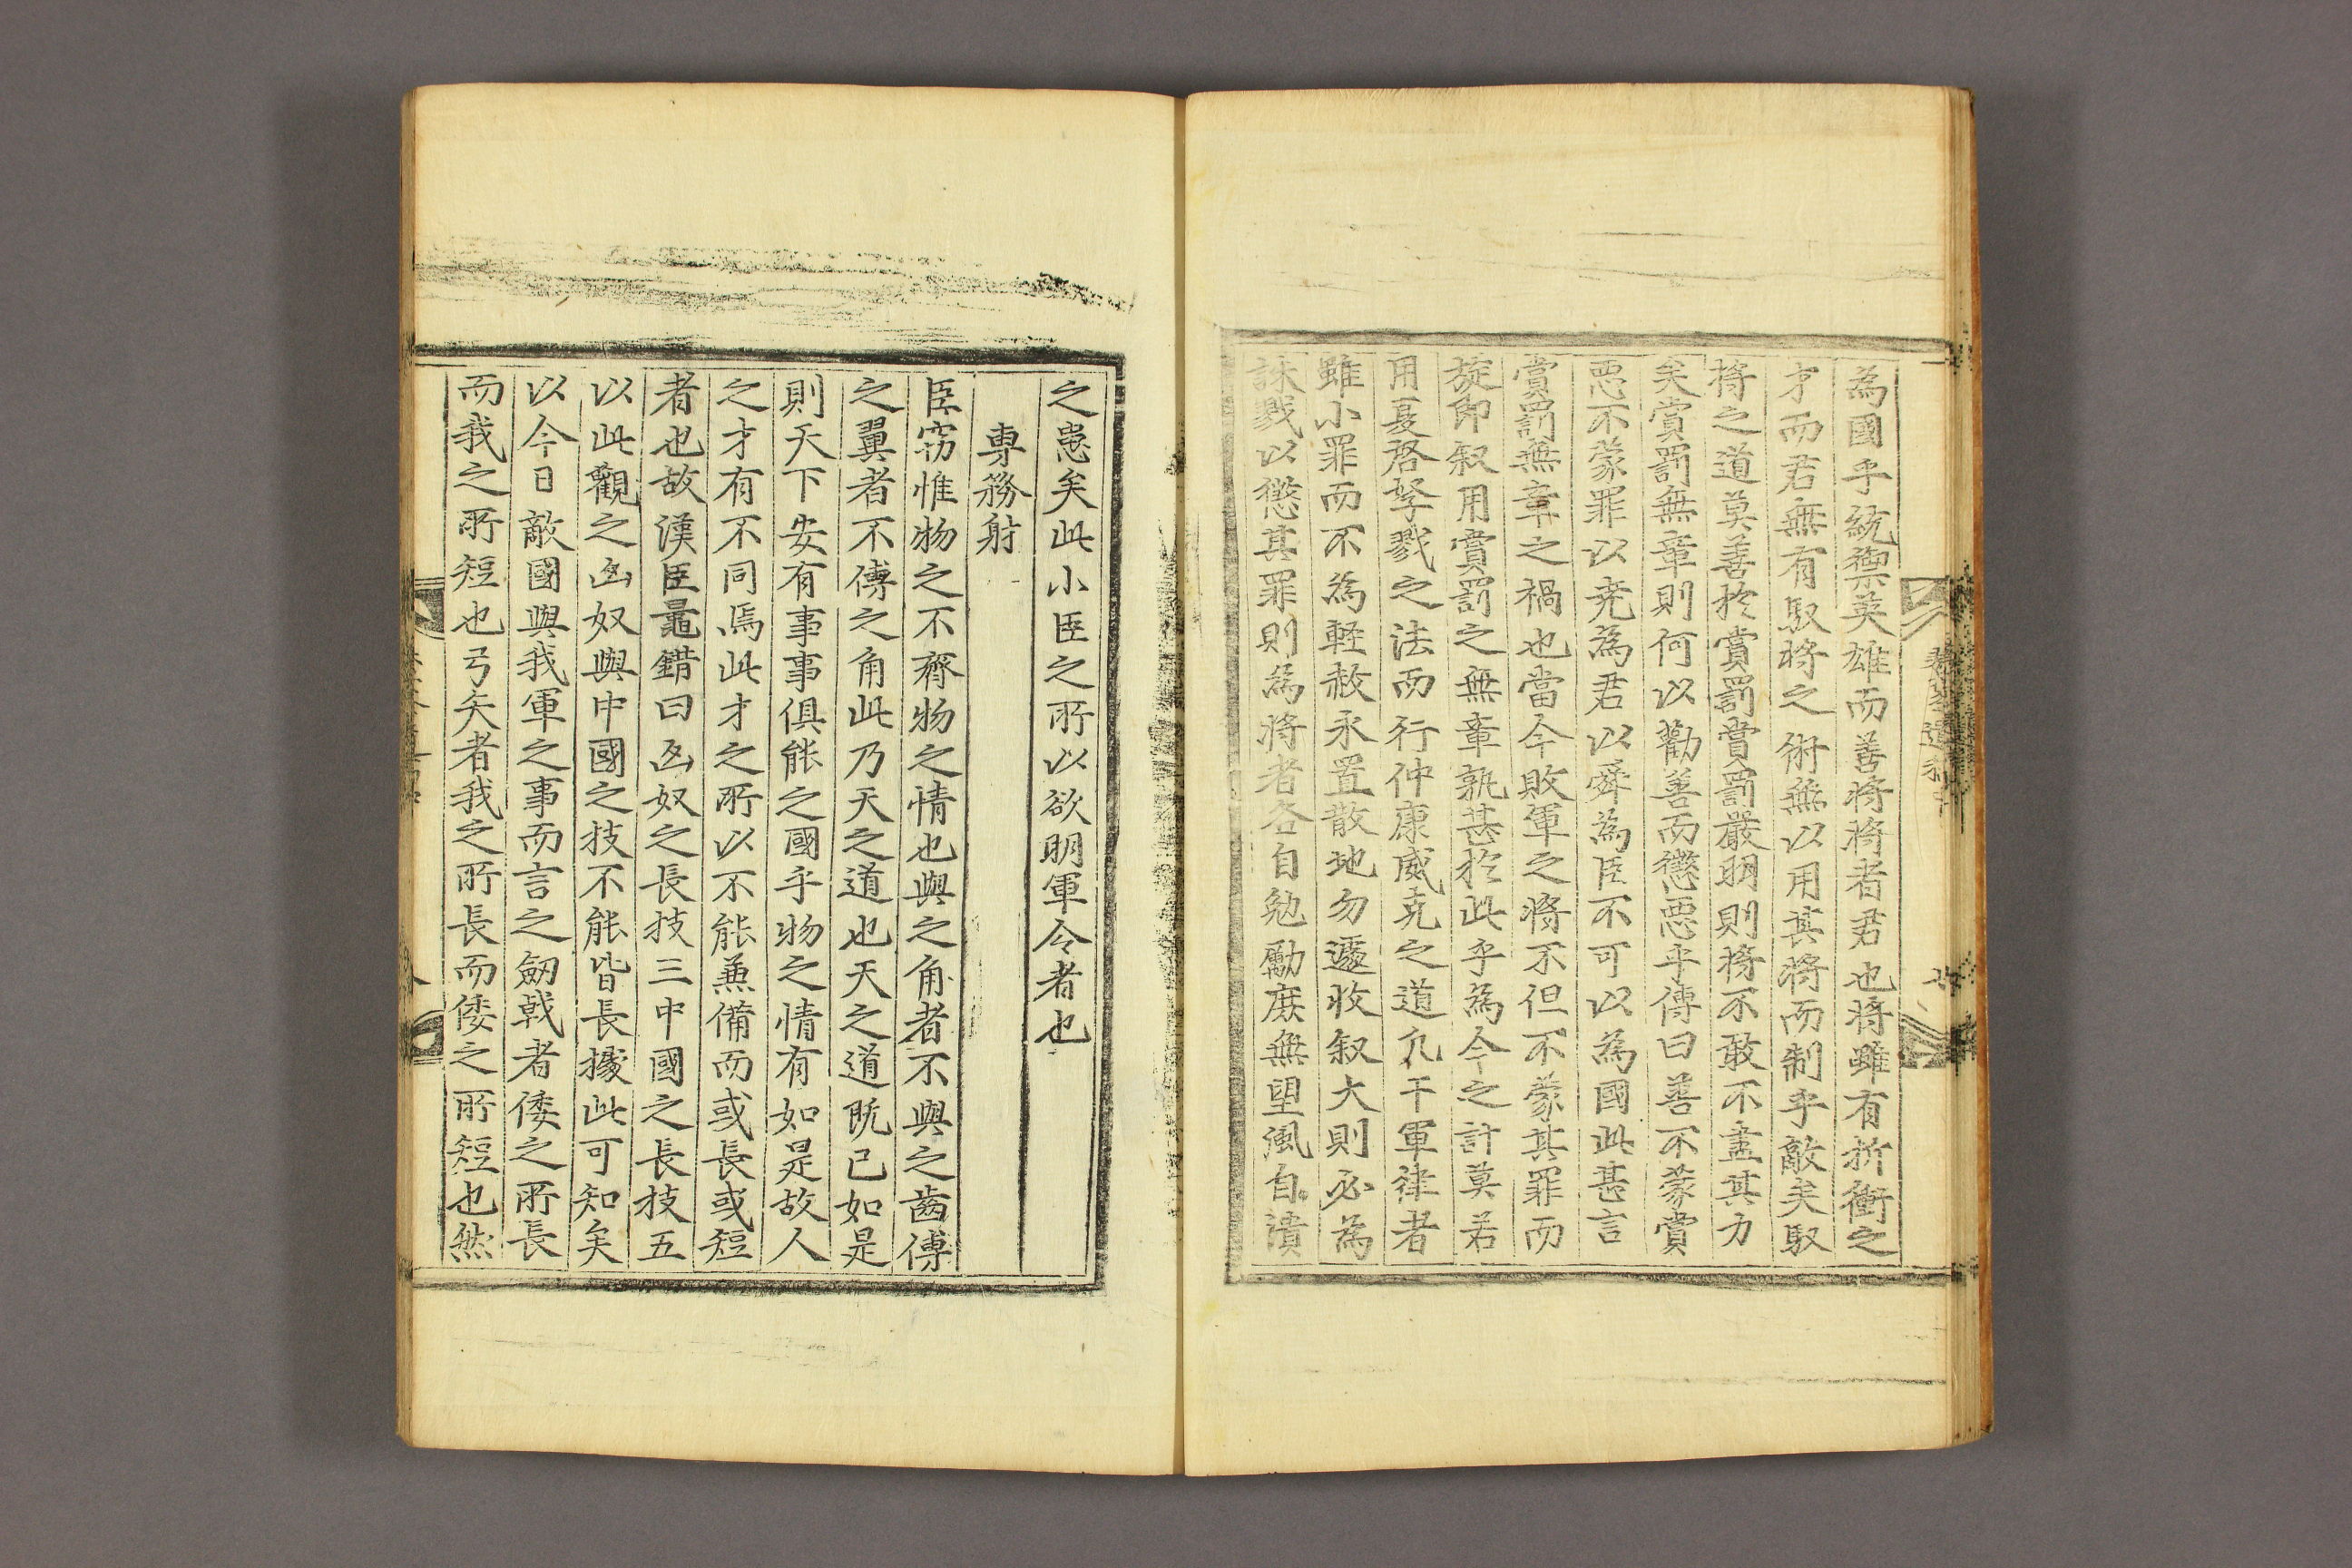 為國乎統禦英雄而善將將者君也將雖有折衝之
才而君無有馭將之術無以用其將而制乎敵矣馭
將之道莫善於賞罰賞罰嚴明則將不敢不盡其力
矣賞罰無章則何以勸善而懲惡乎傳曰善不蒙賞
惡不蒙罪以尭為君以舜為臣不可以為國此甚言
賞罰無章之禍也當今敗軍之將不但不蒙其罪而
旋即叙用賞罰之無章孰甚於此乎為今之計莫若
用夏啓孥戮之法而行仲康威克之道凢干軍律者
雖小罪而不為輕赦永置散地勿遽收叙大則必為
誅戮以懲其罪則為將者各自勉勵庶無望風自潰
之患矣此小臣之所以欲明軍令者也
專務射
臣窃惟物之不齊物之情也與之角者不與之齒傅
之翼者不傅之角此乃天之道也天之道旣已如是
則天下安有事事俱能之國乎物之情有如是故人
之才有不同焉此才之所以不能兼備而或長或短
者也故漢臣鼂錯曰匈奴之長技三中國之長技五
以此觀之匈奴與中國之技不能皆長據此可知矣
以今日敵國與我軍之事而言之劒戟者倭之所長
而我之所短也弓矢者我之所長而倭之所短也然